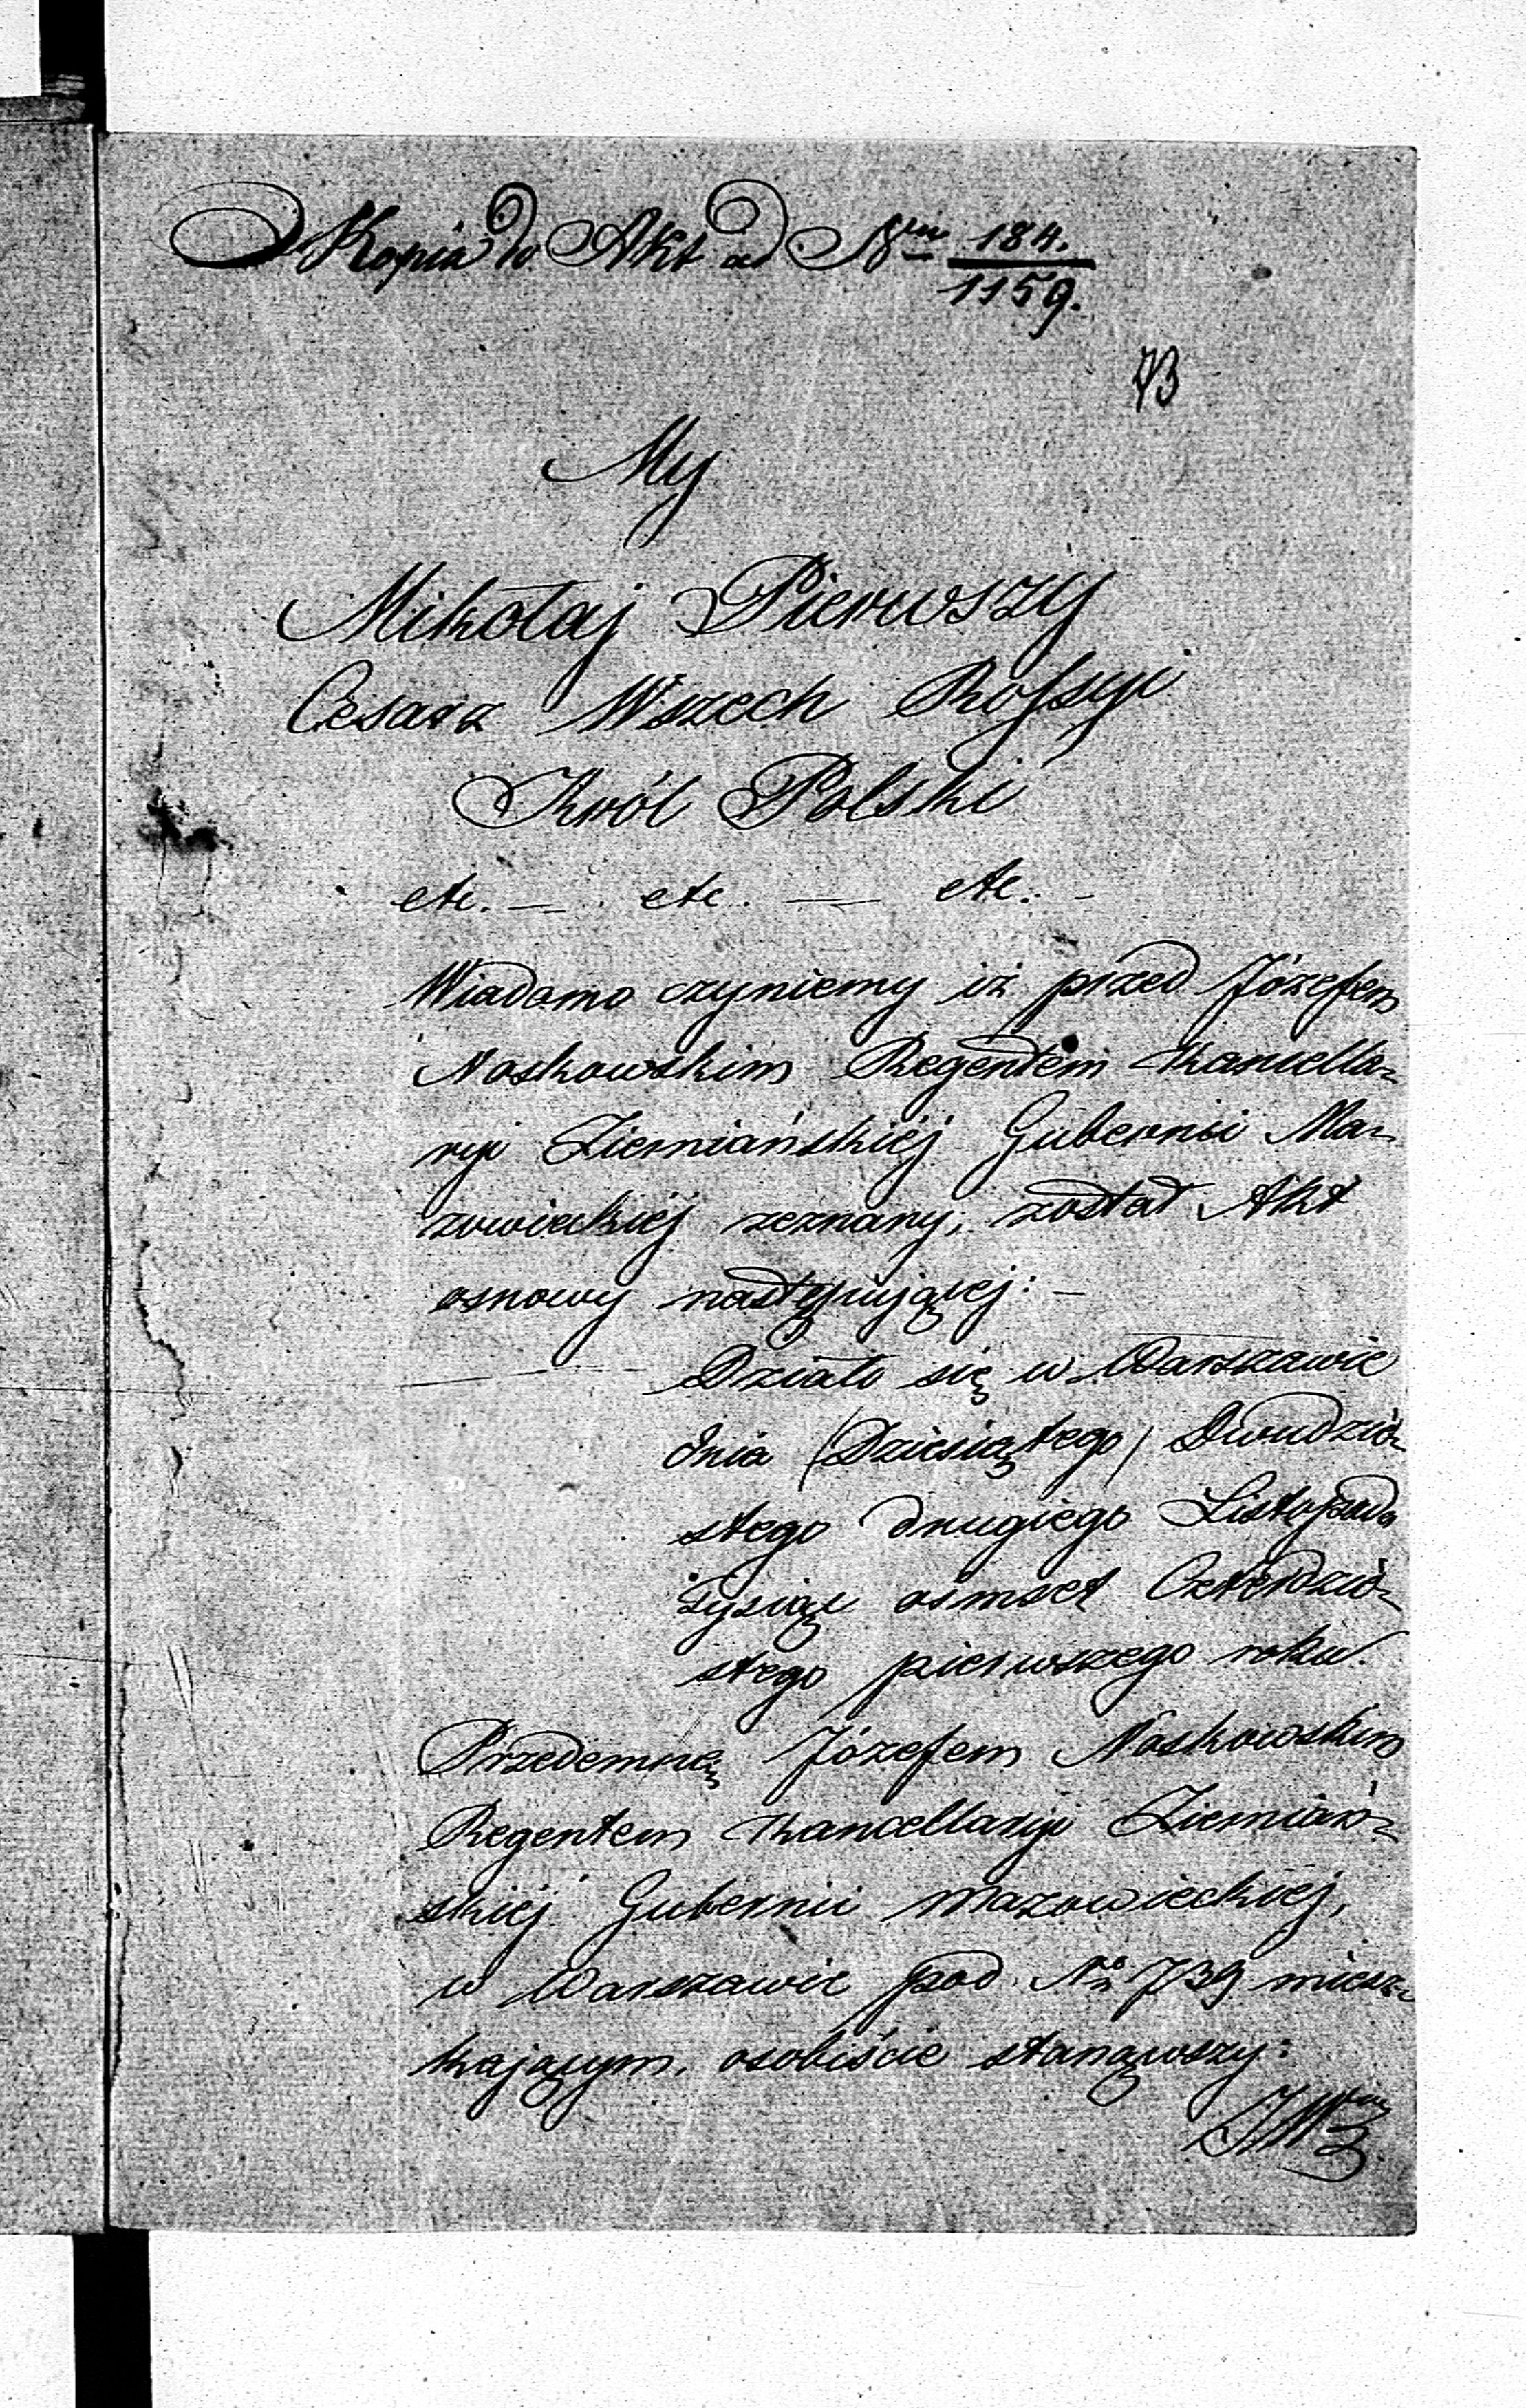 Kopia do Akt ad Nrm 184.
1159.
73
My
Mikołaj Pierwszy
Cesarz Wszech Rossyi
Król Polski
etc. — etc. — etc. —
Wiadomo czyniemy iż przed Józefem
Noskowskim Regentem Kancella-
ryi Ziemiańskiéj Gubernii Ma-
zowieckiéj zeznany, został Akt
osnowy następującej: —
Działo się w Warszawie
dnia (Dziesiątego) Dwudzie-
stego drugiego Listopada
Tysiąc ośmset Czterdzie-
stego pierwszego roku.
Przedemną Józefem Noskowskim
Regentem Kancellaryi Ziemiań-
skiéj Gubernii Mazowieckiéj,
w Warszawie pod No 739 miesz-
kającym, osobiście stanąwszy: